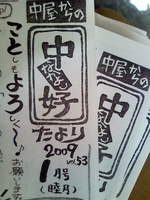 中屋からの
中好
なかよし
たより
2009
vol.53
1月号
(睦月)
ことしも
よろしく〜♪
お願いします
中屋からの
中好